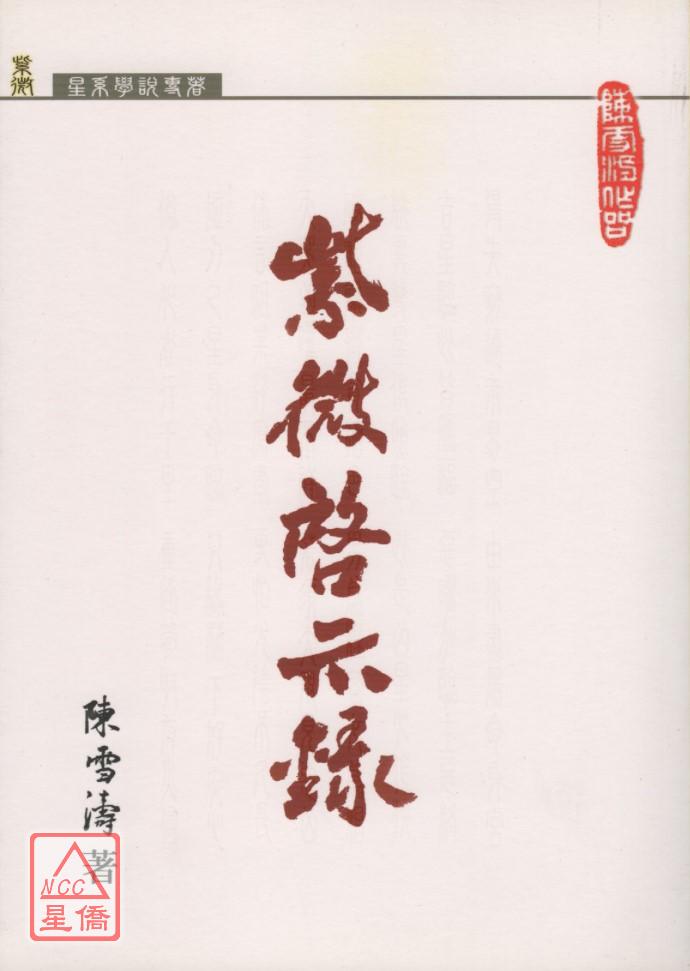 紫微
星系學說專著
陳雪濤作品
紫微啓示錄
陳雪濤
著
NCC
星僑